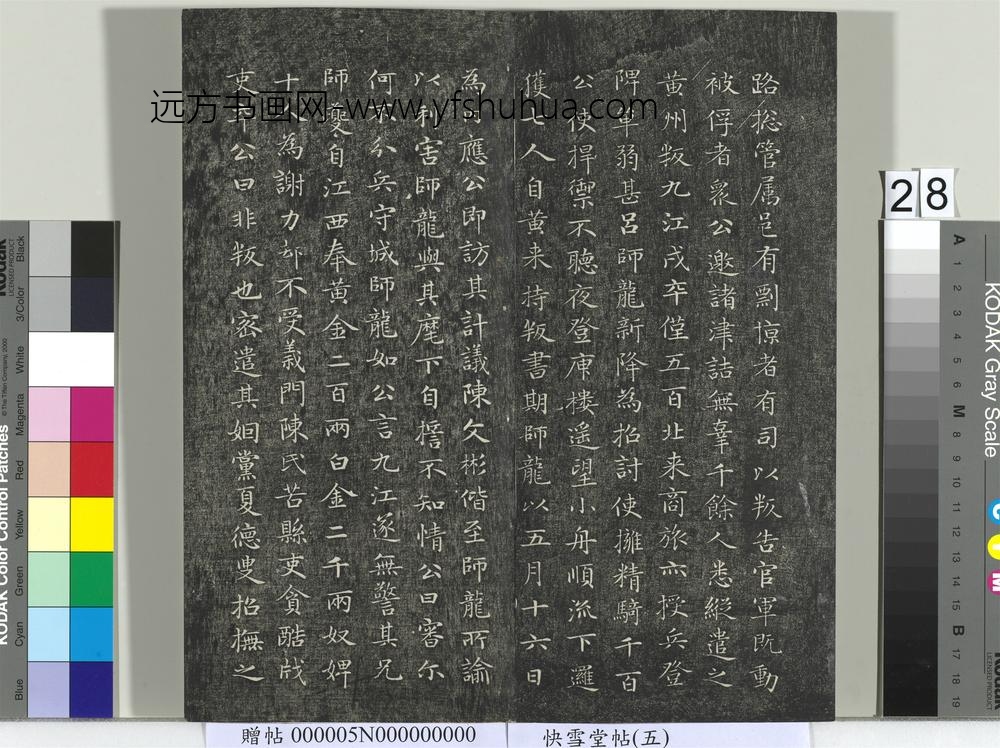 路揔管属邑有剽惊者有司以叛告官軍既動
被俘者衆公邀諸津詰無辜千餘人悉縱遣之
黄州叛九江戍卒僅五百北来商旅亦授兵登
陴單弱甚吕師龍新降為招討使擁精騎千百
公使捍禦不聽夜登庫樓遥望小舟順流下邏
獲七人自黄来持叛書期師龍以五月十六日
為内應公即訪其計議陳文彬偕至師龍所諭
以利害師龍與其麾下自擔不知情公曰審尔
何不分兵守城師龍如公言九江遂無警其兄
師夔自江西奉黄金二百兩白金二千兩奴婢
十人為謝力却不受義門陳氏苦縣吏貪酷戕
吏卒公曰非叛也密遣其姻黨夏德叟招撫之
远方书画网 www.yfshuhua.com
28
KODAK Gray Scale
A 1 2 3 4 5 6 M 8 9 10 11 12 13 14 15 B 17 18 19
C Y M
Kodak
LICENSED PRODUCT
KODAK Color Control Patches
© The Tiffen Company, 2000
Blue Cyan Green Yellow Red Magenta White 3/Color Black
贈帖 000005N000000000
快雪堂帖(五)